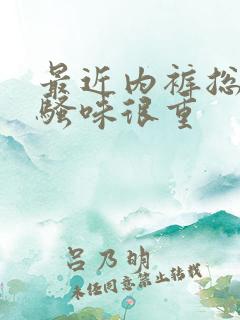 最近内裤总
骚味很重
吕乃明
未经同意禁止转载